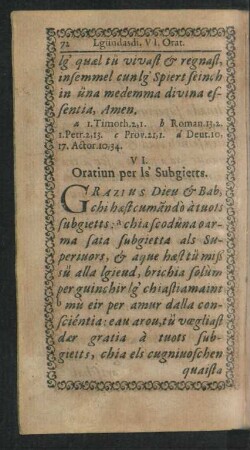 72 Lgündasch, VI. Orat.
lg' qual tü vivast & regnast,
insemmel cun lg' Spiert seinch
in üna medemma divina es-
sentia, Amen.
a 1.Timoth.2,1. b Roman.13.2.
1.Petr.2,13. c Prov.21,1. d Deut.10.
17. Actor.10.34.
VI.
Oratiun per ls' Subgietts.
GRAZIUS Dieu & Bab,
chi hæst cumãdò à tuots
subgietts: a chia scodüna oar-
ma saia subgietta als Su-
periuors, & aque hæst tü miss
sü alla lgieud, brichia solùm
per guinchir lg' chiastiamaint
mu eir per amur dalla con-
sciéntia: eau arou, tü vœgliast
dar gratia à tuots sub-
gietts, chia els cugniuoschen
quaista